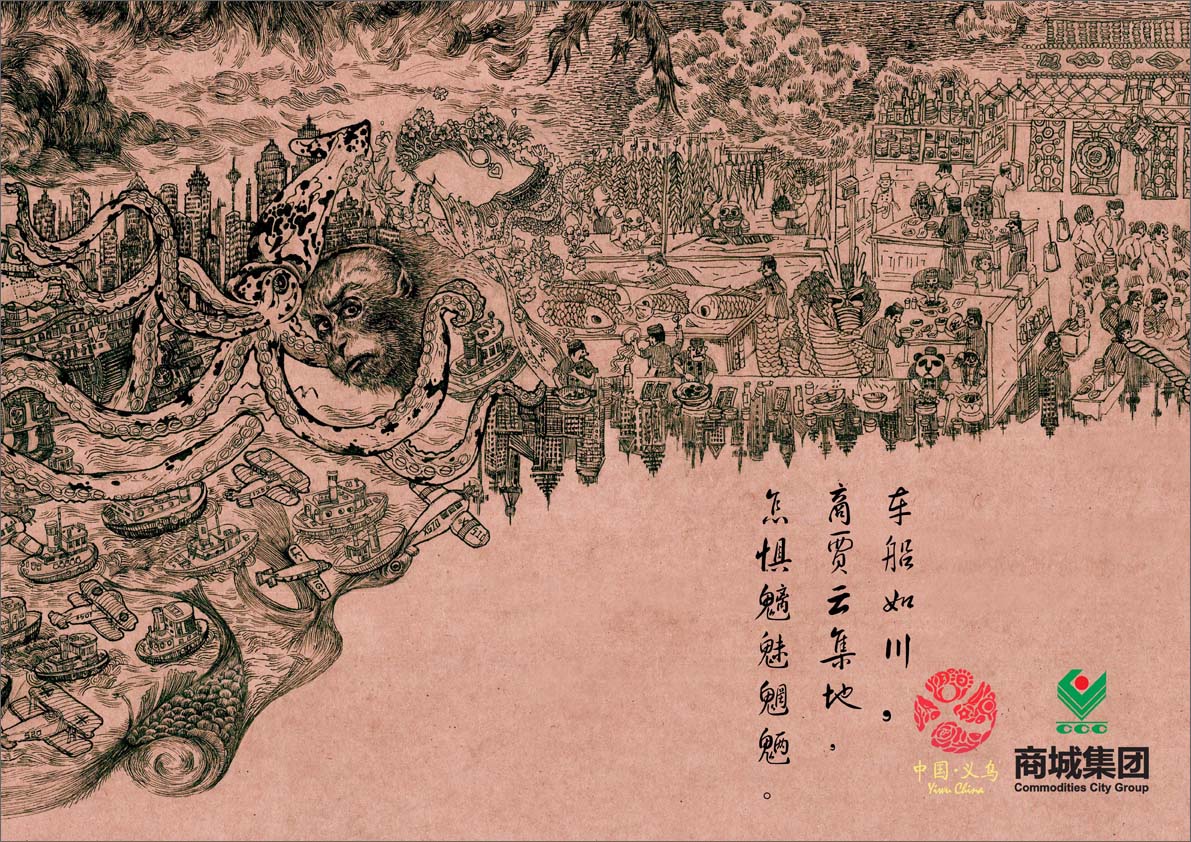 车船如川，
商贾云集地，
怎惧魑魅魍魉。
中国·义乌
Yiwu China
CCC
商城集团
Commodities City Group